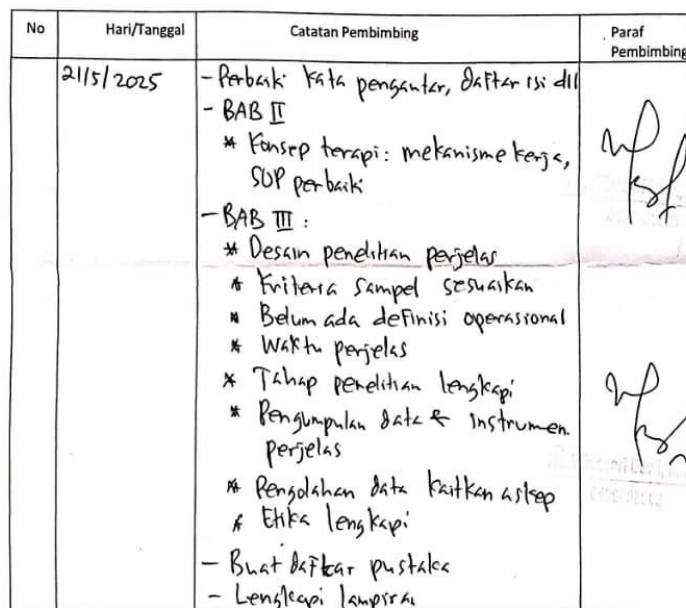 No Hari/Tanggal Catatan Pembimbing Paraf
Pembimbing
21/5/2025 - Perbaiki kata pengantar, daftar isi dll
- BAB II
* Konsep terapi: mekanisme kerja,
SOP perbaiki
- BAB III :
* Desain penelitian perjelas
* Kriteria sampel sesuaikan
* Belum ada definisi operasional
* Waktu perjelas
* Tahap penelitian lengkapi
* Pengumpulan data & instrumen
perjelas
* Pengolahan data kaitkan askep
* Etika lengkapi
- Buat daftar pustaka
- Lengkapi lampiran